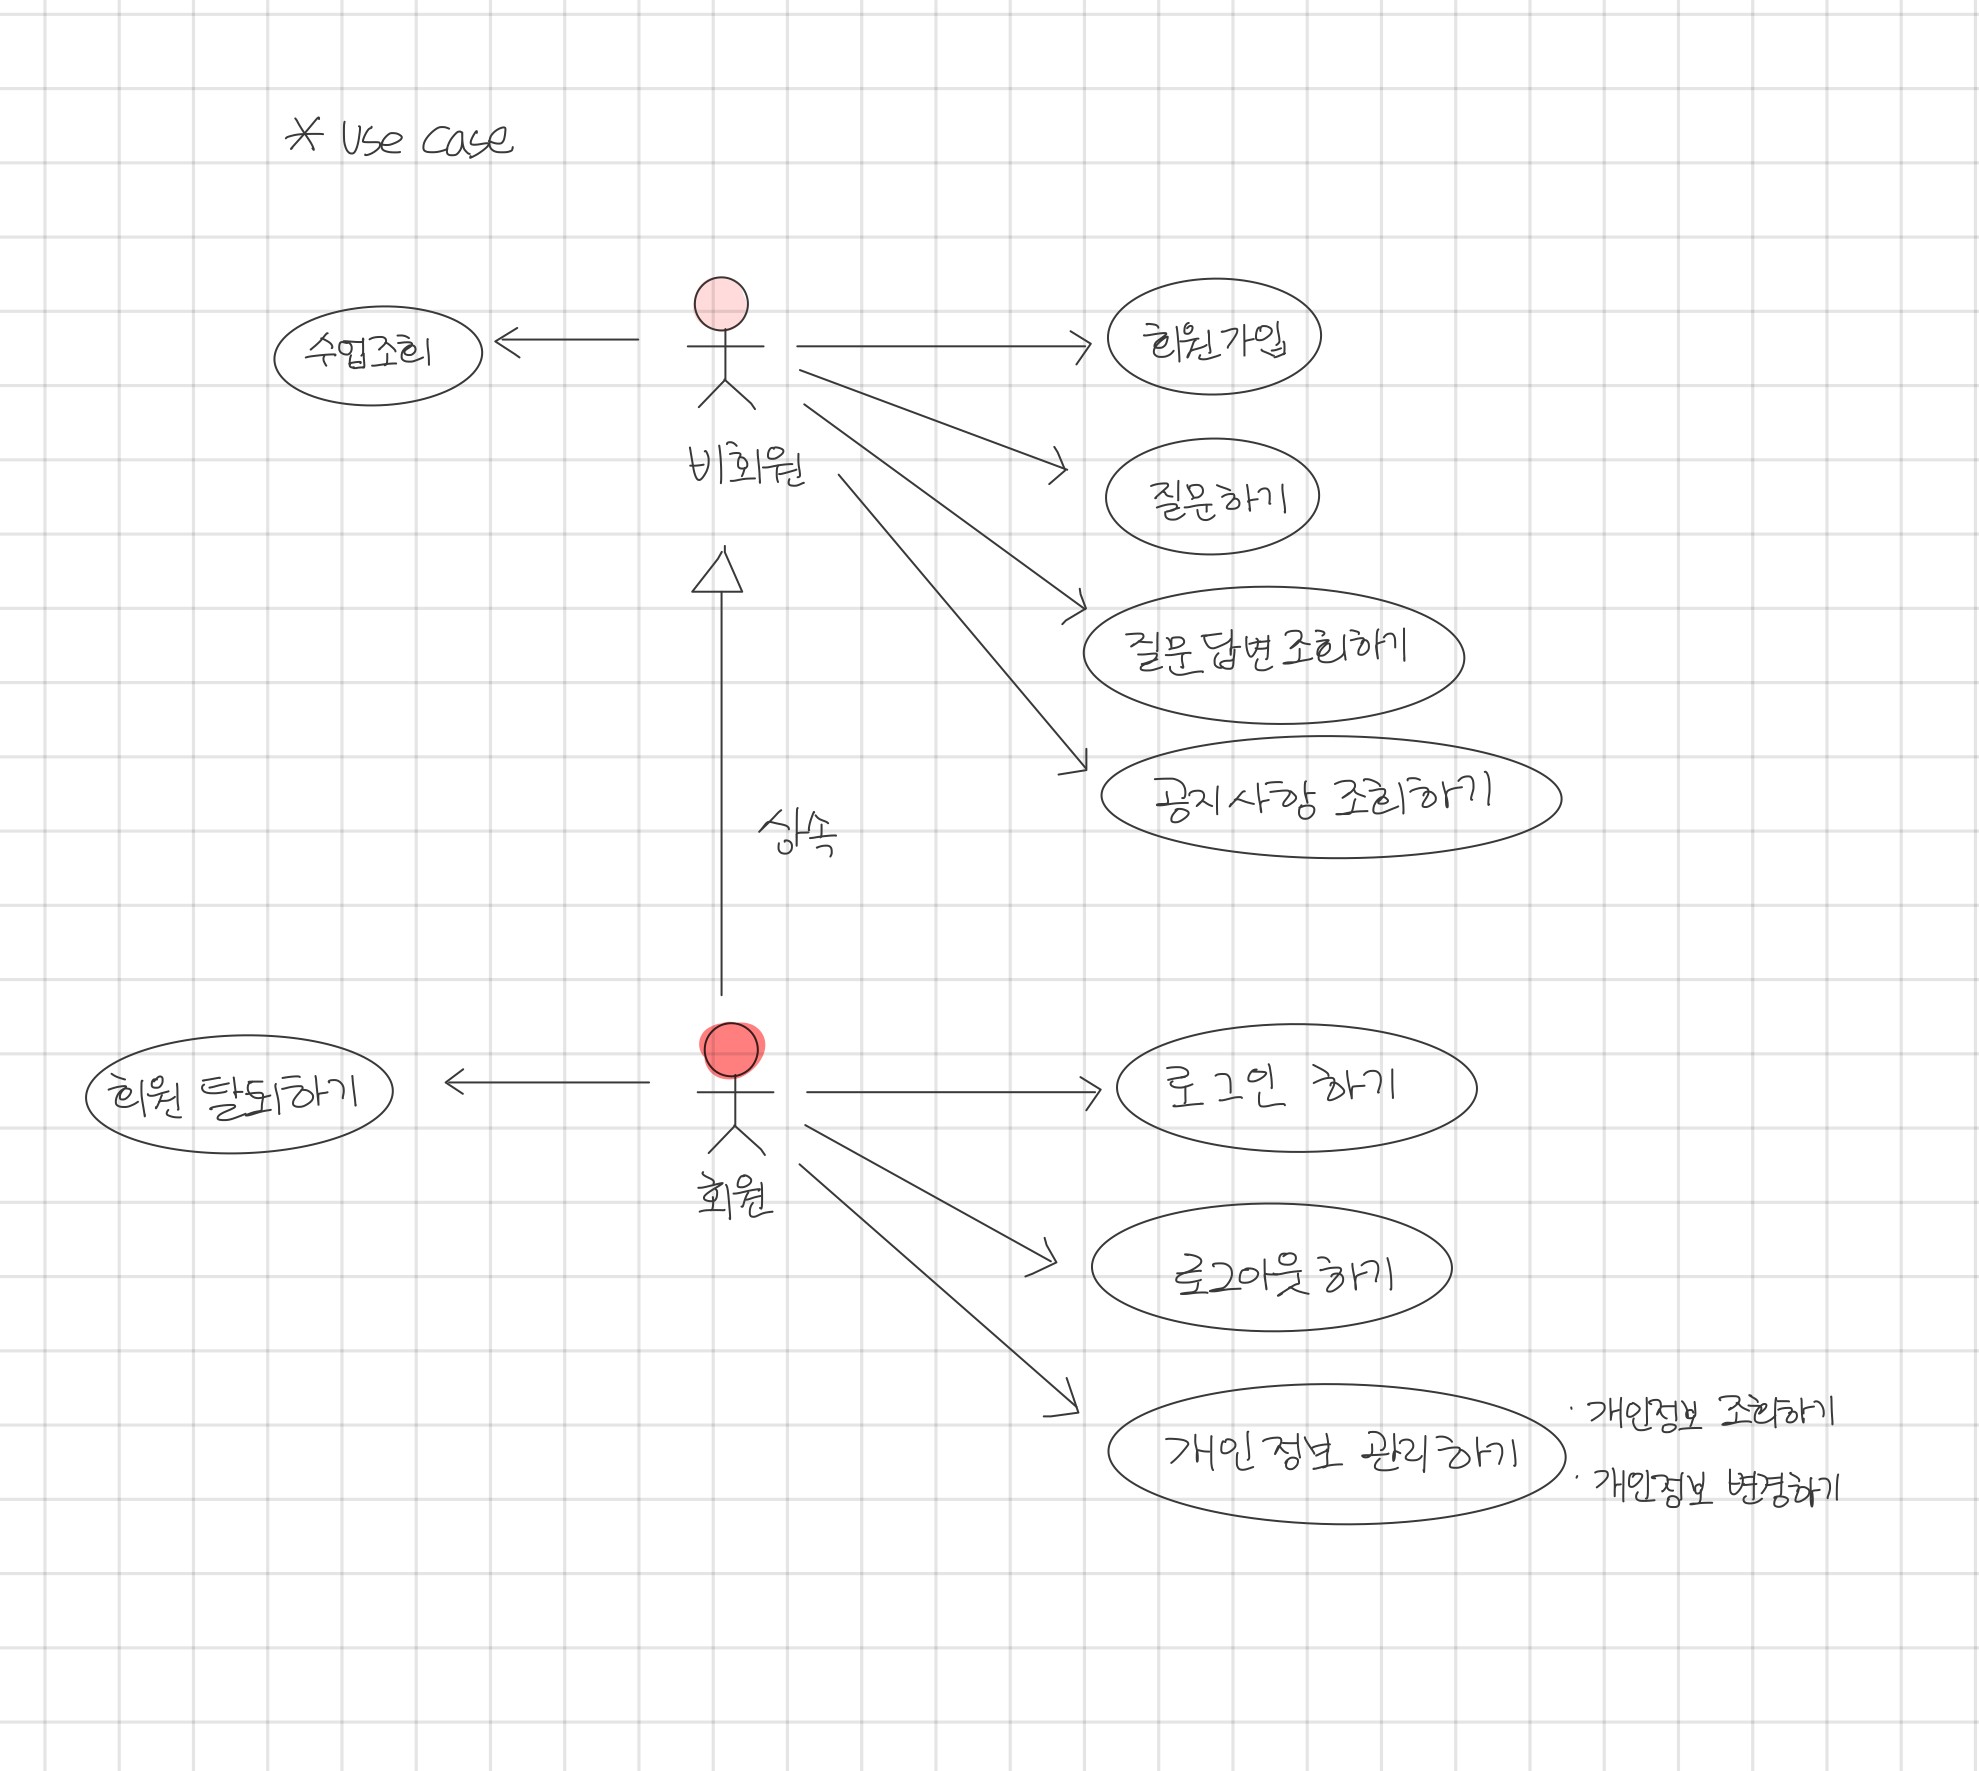 * Use case
수업조회
회원가입
비회원
질문하기
질문답변 조회하기
공지사항 조회하기
상속
회원 탈퇴하기
로그인 하기
회원
로그아웃 하기
개인정보 관리하기
· 개인정보 조회하기
· 개인정보 변경하기